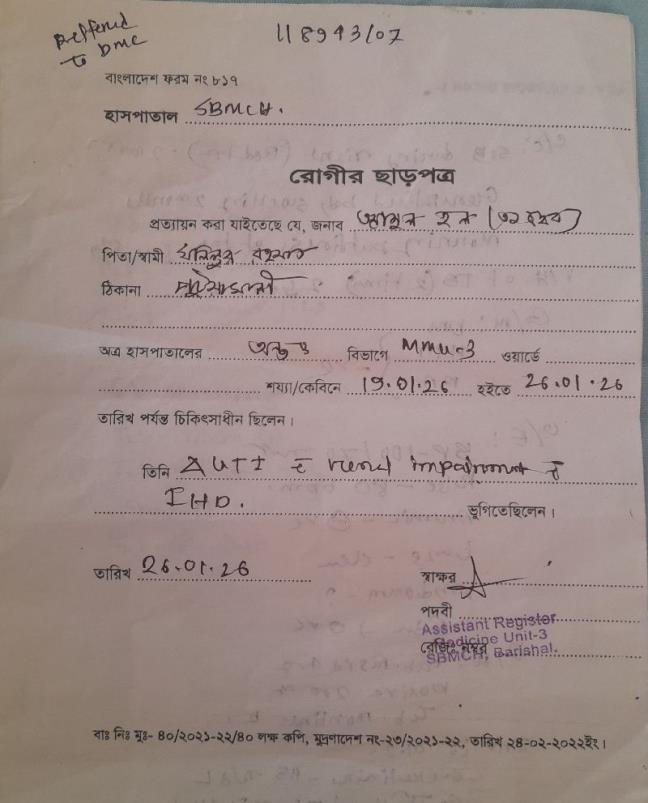 Reffered
to DMC
118943/07
বাংলাদেশ ফরম নং ৮১৭
হাসপাতাল SBMCH.
রোগীর ছাড়পত্র
প্রত্যায়ন করা যাইতেছে যে, জনাব হক (৩১ বছর)
পিতা/স্বামী রহমান
ঠিকানা
অত্র হাসপাতালের অন্তঃ বিভাগে MMU-3 ওয়ার্ডে
শয্যা/কেবিনে 19.01.26 হইতে 26.01.26
তারিখ পর্যন্ত চিকিৎসাধীন ছিলেন।
তিনি UTI c renal impairment c
IHD. ভূগিতেছিলেন।
তারিখ 26.01.26
স্বাক্ষর
পদবী
Assistant Register
Medicine Unit-3
রেজিঃ নম্বর
SBMCH, Barishal.
বাঃ নিঃ মুঃ- ৪০/২০২১-২২/৪০ লক্ষ কপি, মুদ্রণাদেশ নং-২৩/২০২১-২২, তারিখ ২৪-০২-২০২২ইং।